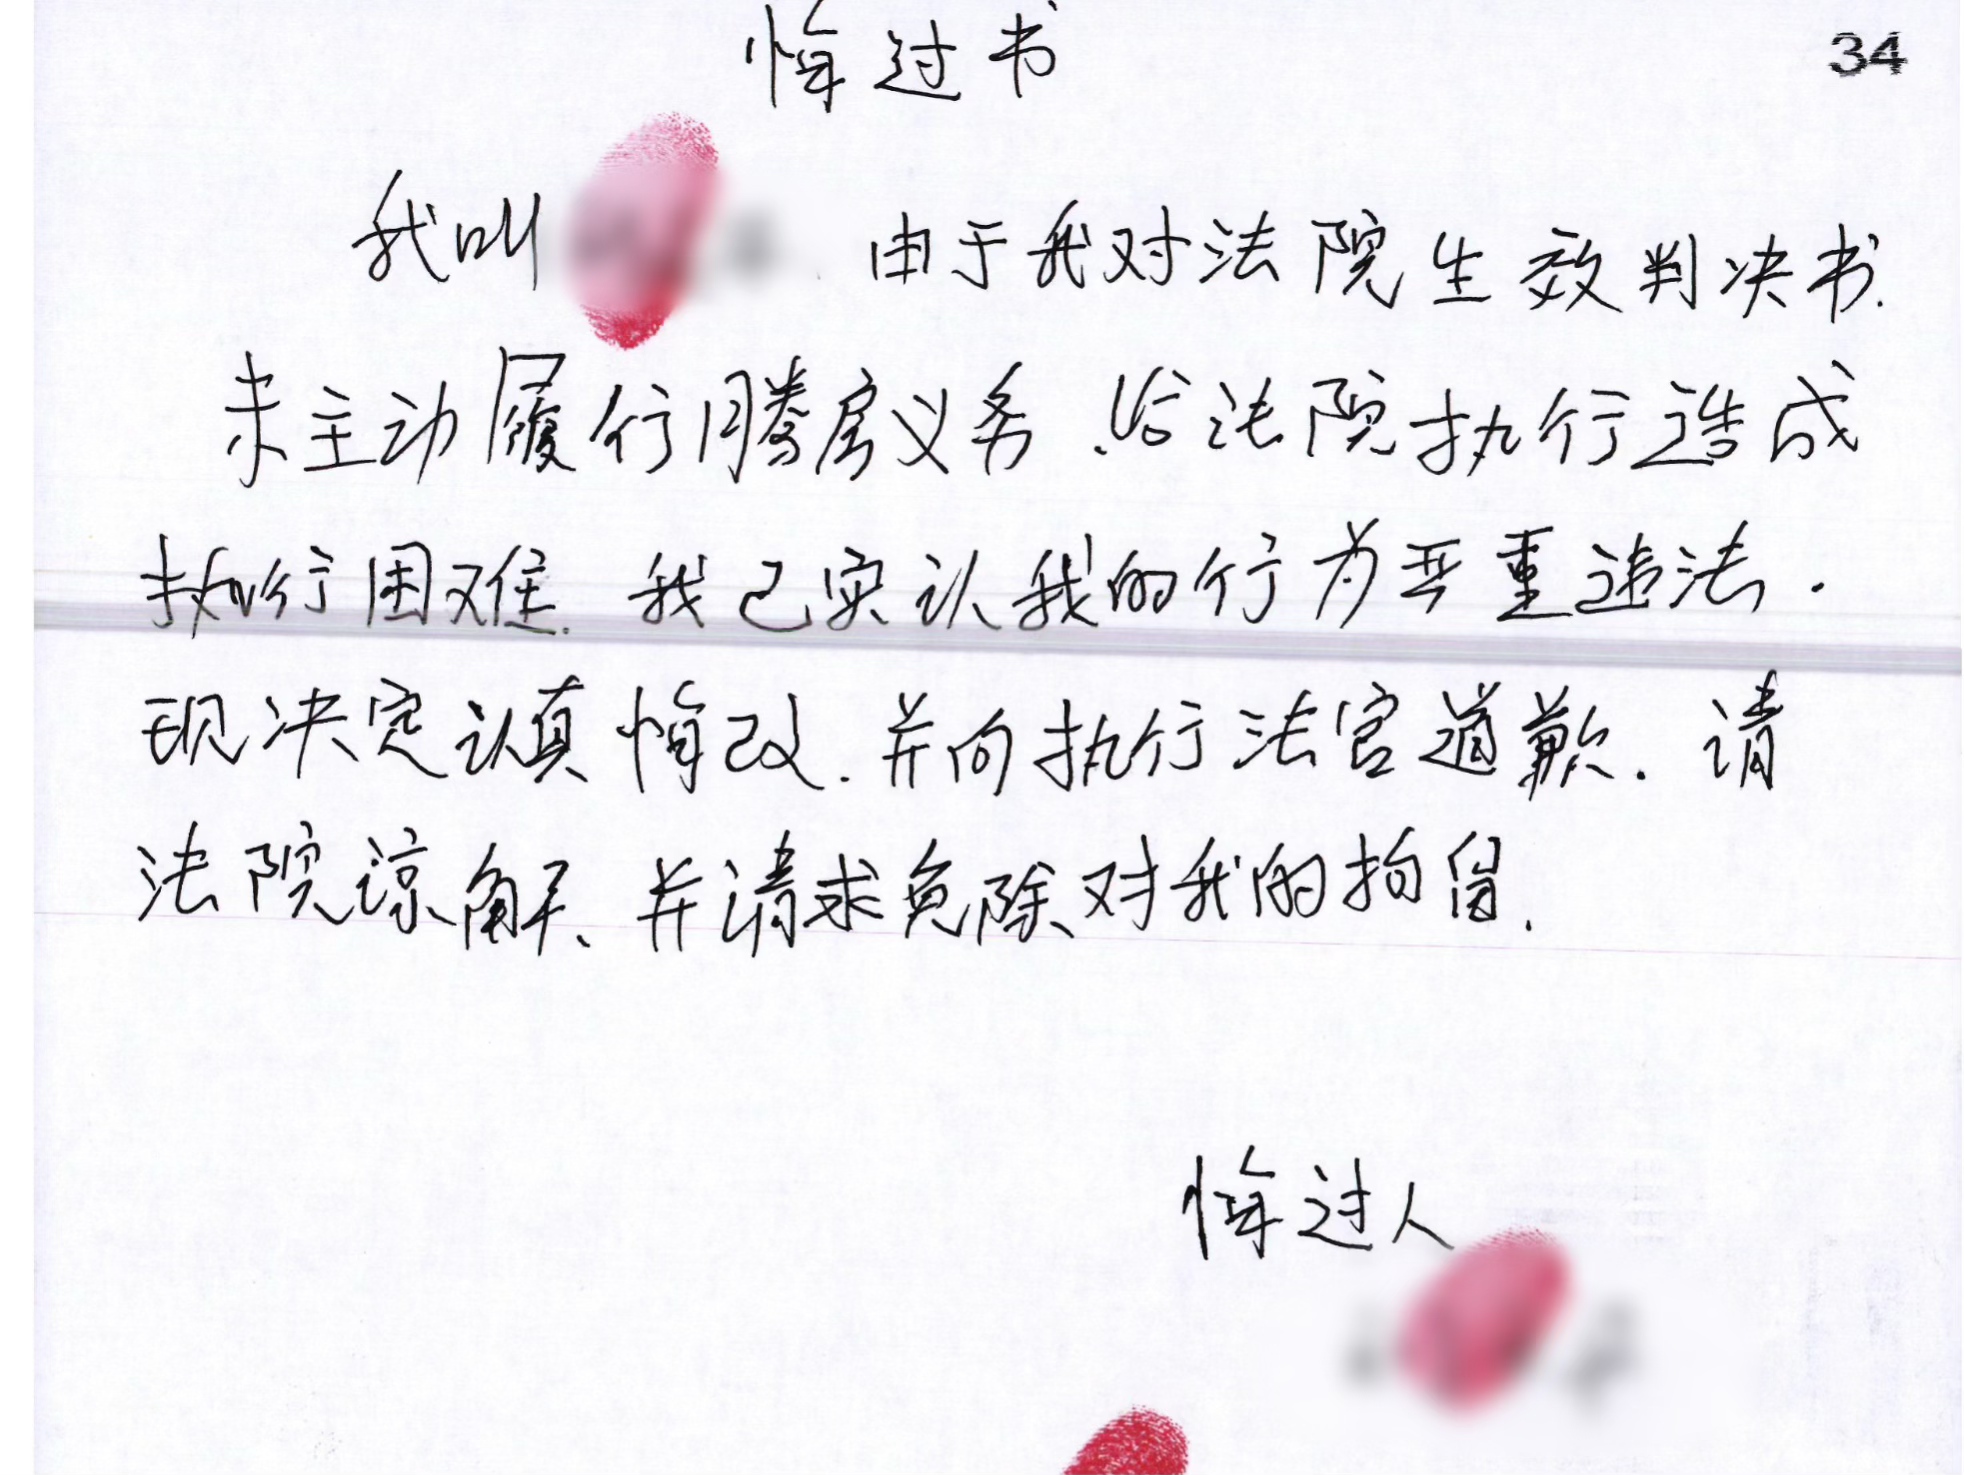 悔过书
34
我叫 由于我对法院生效判决书.
未主动履行腾房义务.给法院执行造成
执行困难.我已实认我的行为严重违法.
现决定认真悔改.并向执行法官道歉.请
法院谅解、并请求免除对我的拘留.
悔过人